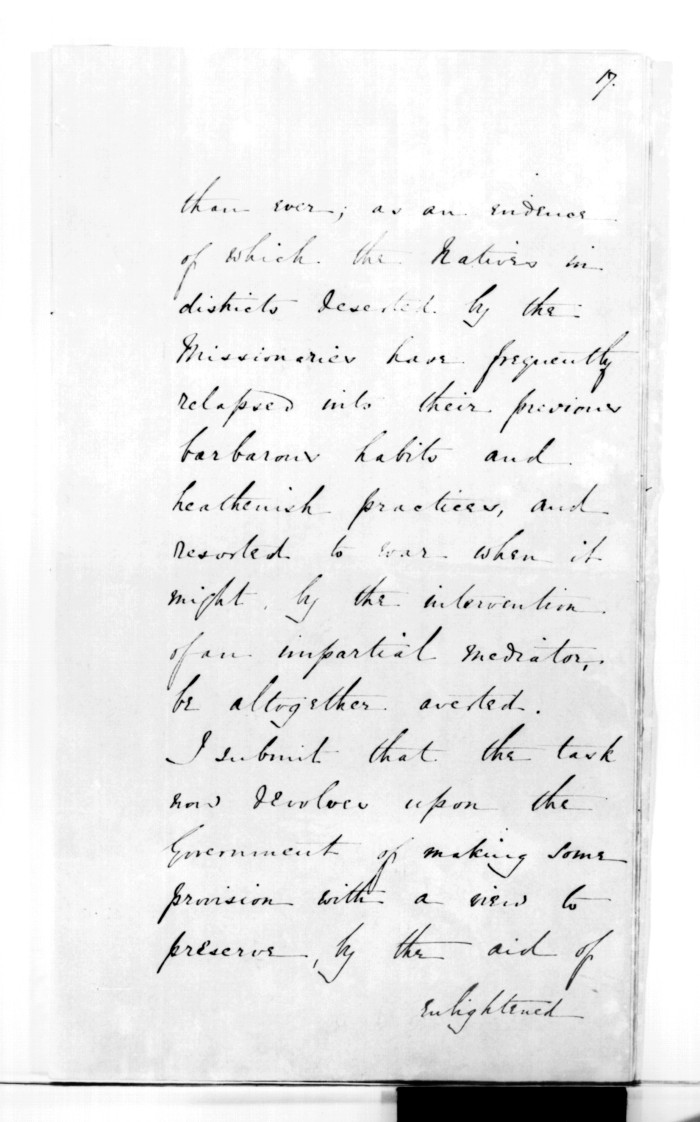 17.
than ever; as an evidence
of which the Natives in
districts deserted by the
Missionaries have frequently
relapsed into their previous
barbarous habits and
heathenish practices, and
resorted to war when it
might, by the intervention
of an impartial mediator,
be altogether averted.
I submit that the task
now devolves upon the
Government of making some
provision with a view to
preserve, by the aid of
enlightened